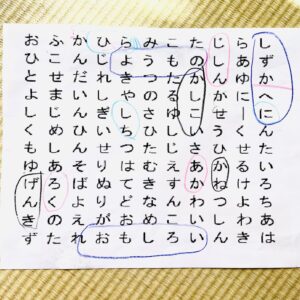 しずかへにんたいろちあは
らあゆにーくせるけよきわ
じしんかせうひかねつしん
たのかしこいさあかわいい
こもたるゆしじえすんころ
みうつのさひたむきなめし
らよきやしちつはてどおも
ひじれしぎいせりぬりがお
かんだいんひんそばよえれ
ふこせまじめしあろくのた
おひとよしくもゆげんきず